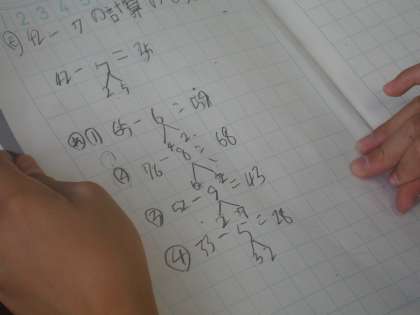 1 2 3 4
42 - 7 の計算の
42 - 7 = 35
2 5
① 65 - 6 = 59
② 76 - 8 = 68
6 2
③ 52 - 9 = 43
2 7
④ 33 - 5 = 28
3 2